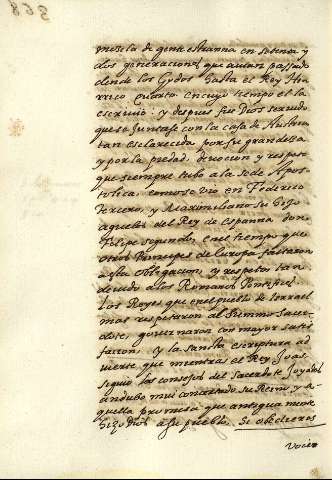 mezcla de gente estranna en setenta y
dos generaciones que auian passado
desde los Godos hasta el Rey Hen
rrico quarto en cuyo tiempo el la
escriuio: y despues fue Dios seruido
que se Juntasse con la casa de Austria
tan esclarecida por su grandeza
y por la piedad, deuocion y respeto
que siempre tubo a la sede Apos
tolica. como se vio en Federico
Tercero, y Maximiliano su Hijo
aguelos del Rey de Espanna don
Felipe segundo, en el tiempo que
otros Principes de Europa faltaron
a esta obligacion, y respetos tan
deuido a los Romanos Pontifices.
Los Reyes que en el pueblo de Isrrael
mas respetaron al Summo Sacer
dote, gouernaron con mayor satis
facion. y la santa escriptura ad
uierte que mientras el Rey Joas
seguio los consejos del Sacerdote Joyada
andubo mui concertado su Reino, y a
quella promesa que antiguamente
Hizo Dios a su pueblo. Si obedecieres
vocem